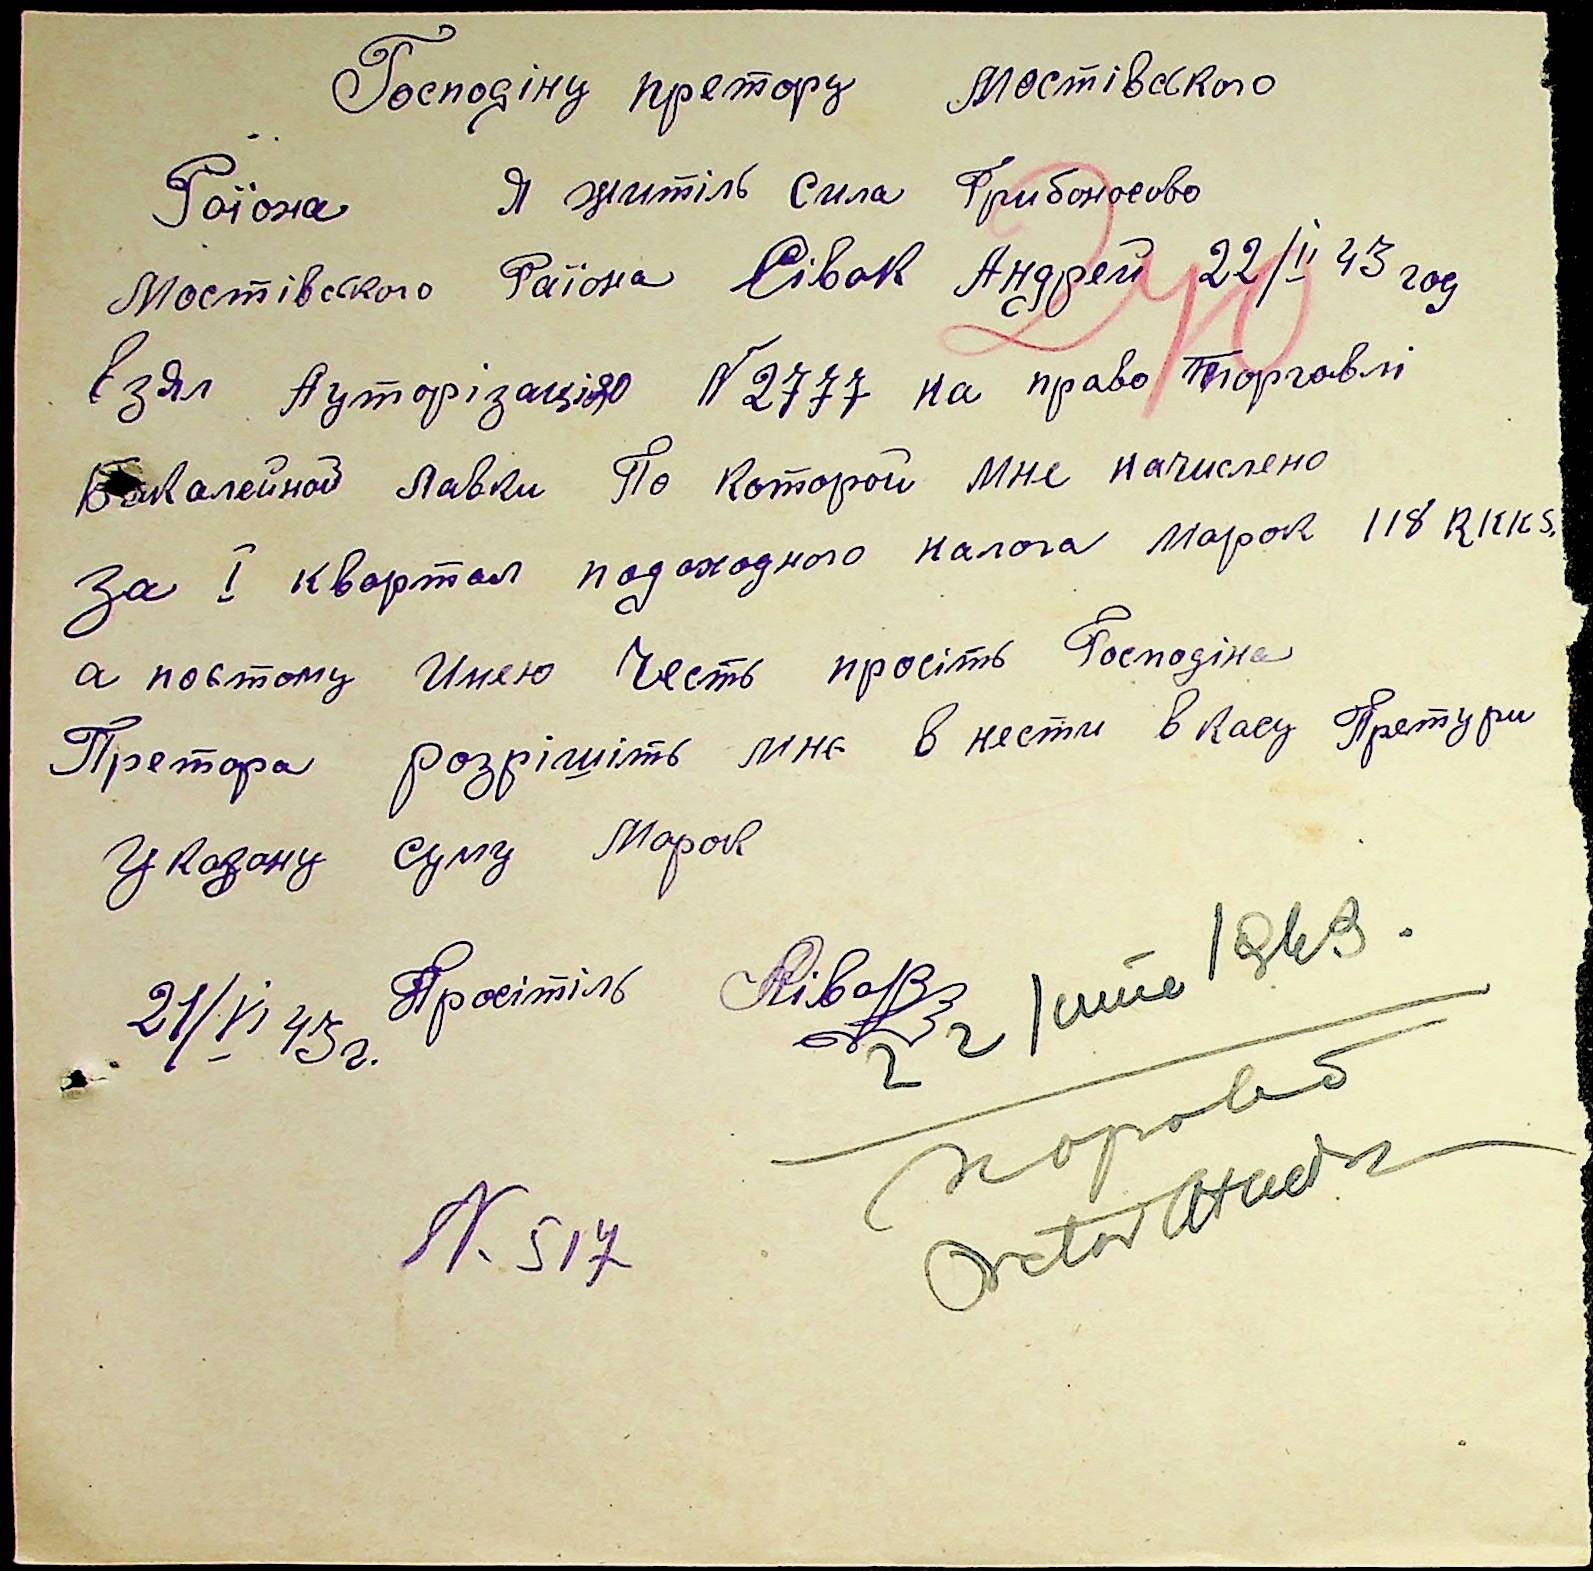 Господіну претору Мостівского
Гаїона Я житіль Сила Грибоносово
Мостівского Гаїона Сівак Андрей 22/II 43 год
взял Ауторізацію N 2777 на право Торговлі
Бакалейной Лавки По которой мне начислено
За I квартал подоходного налога Марок 118 RKKS.
а поэтому Имею Честь просіть Господіна
Претора розрішіть мне внести в касу Претури
Указану суму Марок
21/VI 43 г. Просітіль Сівак
22 Iunie 1943.
N. 517